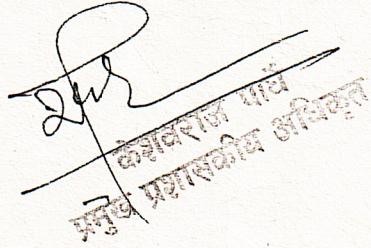 केशवराज पाथे
प्रमुख प्रशासकीय अधिकृत